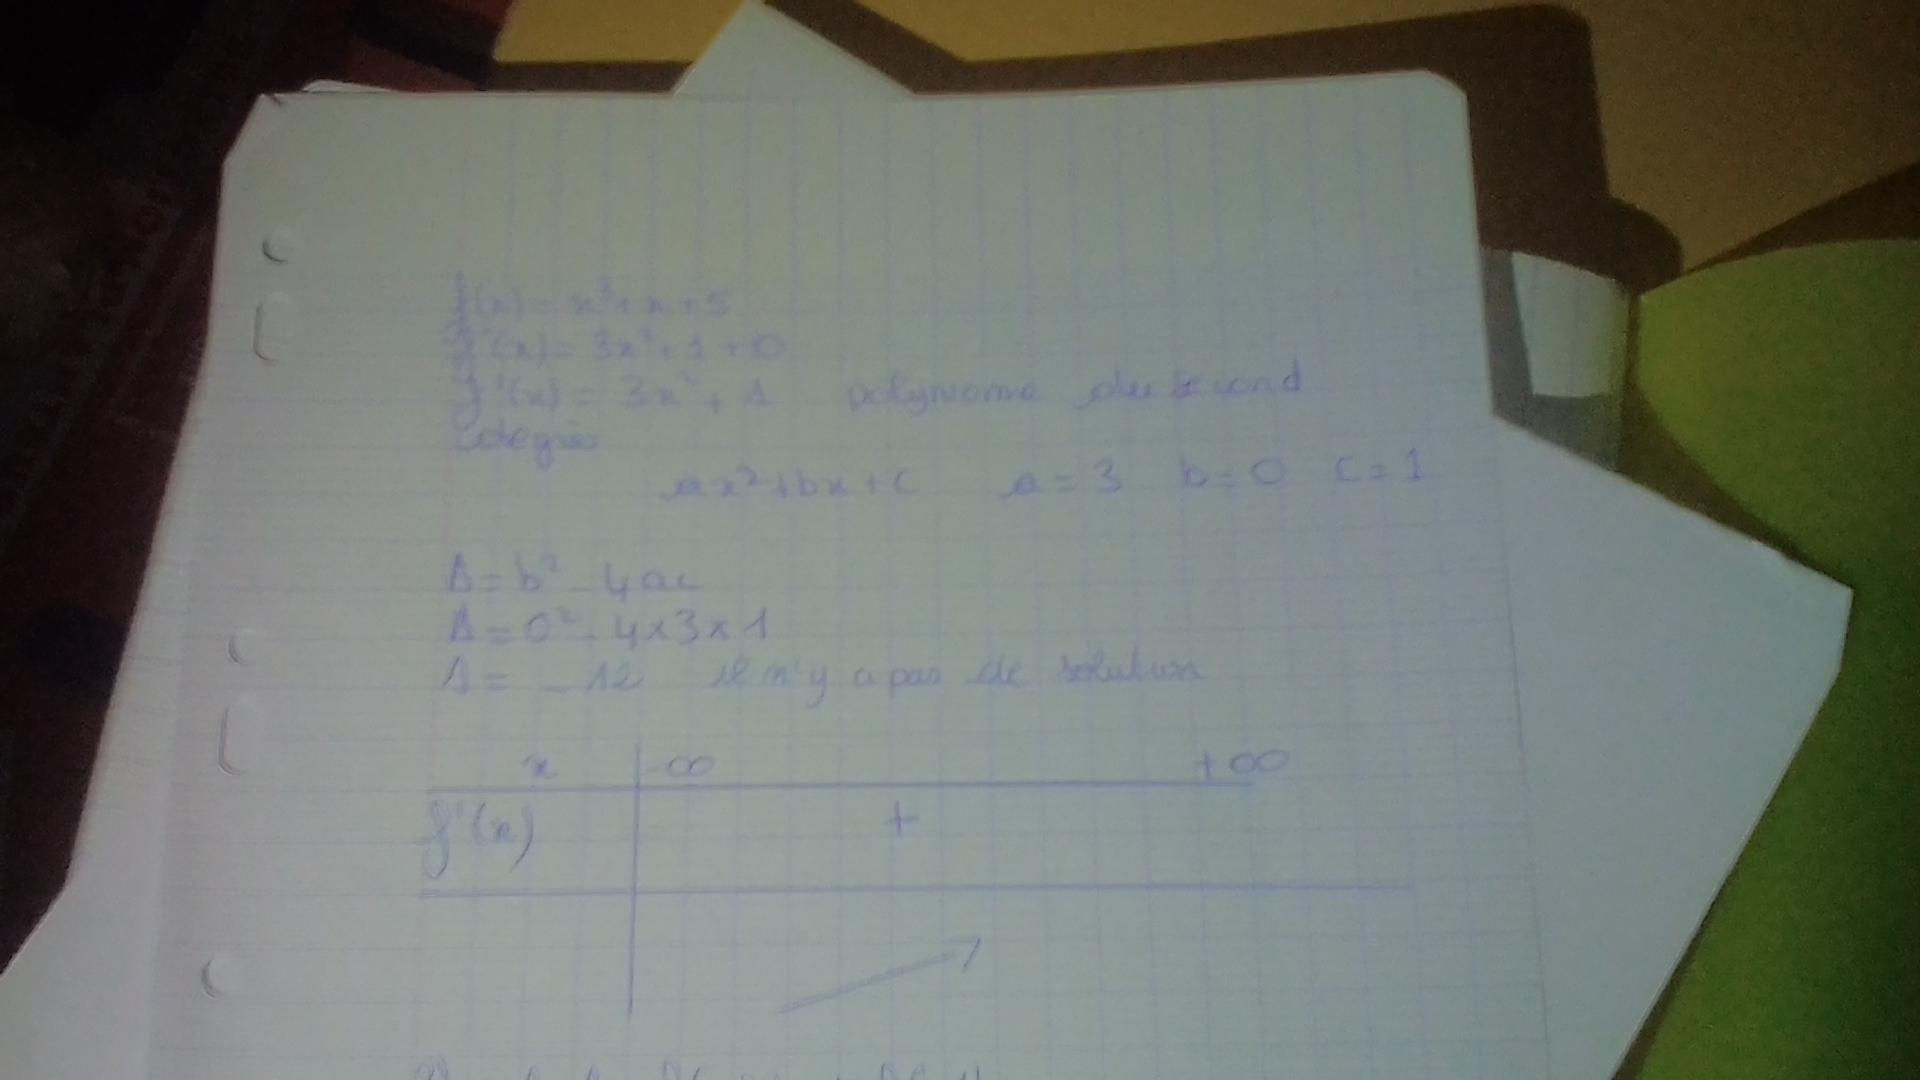 f(x) = x³ + x + 5
f'(x) = 3x² + 1 + 0
f'(x) = 3x² + 1 polynome du second
degré
ax² + bx + c a = 3 b = 0 c = 1
Δ = b² - 4ac
Δ = 0² - 4x3x1
Δ = -12 il n'y a pas de solution
x -∞ +∞
f'(x) +